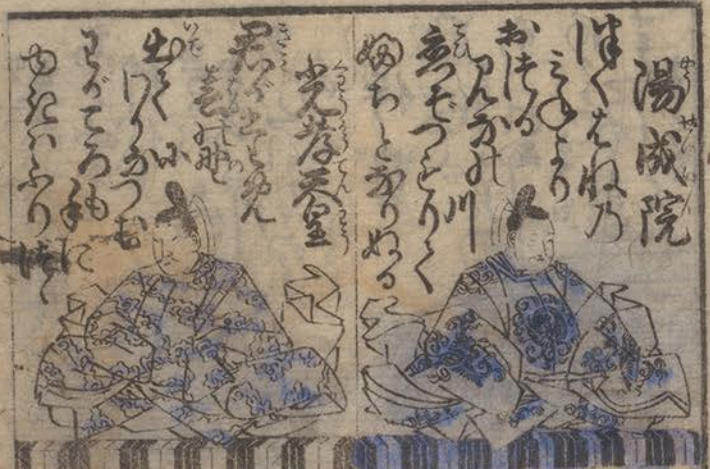 陽成院
つくはね乃
みねより
おつる
みなの川
恋ぞつもりて
婦ちとなりぬる
光孝天皇
君がため
春の野に
出て
わかなつむ
わがころも手に
ゆきハふりつゝ